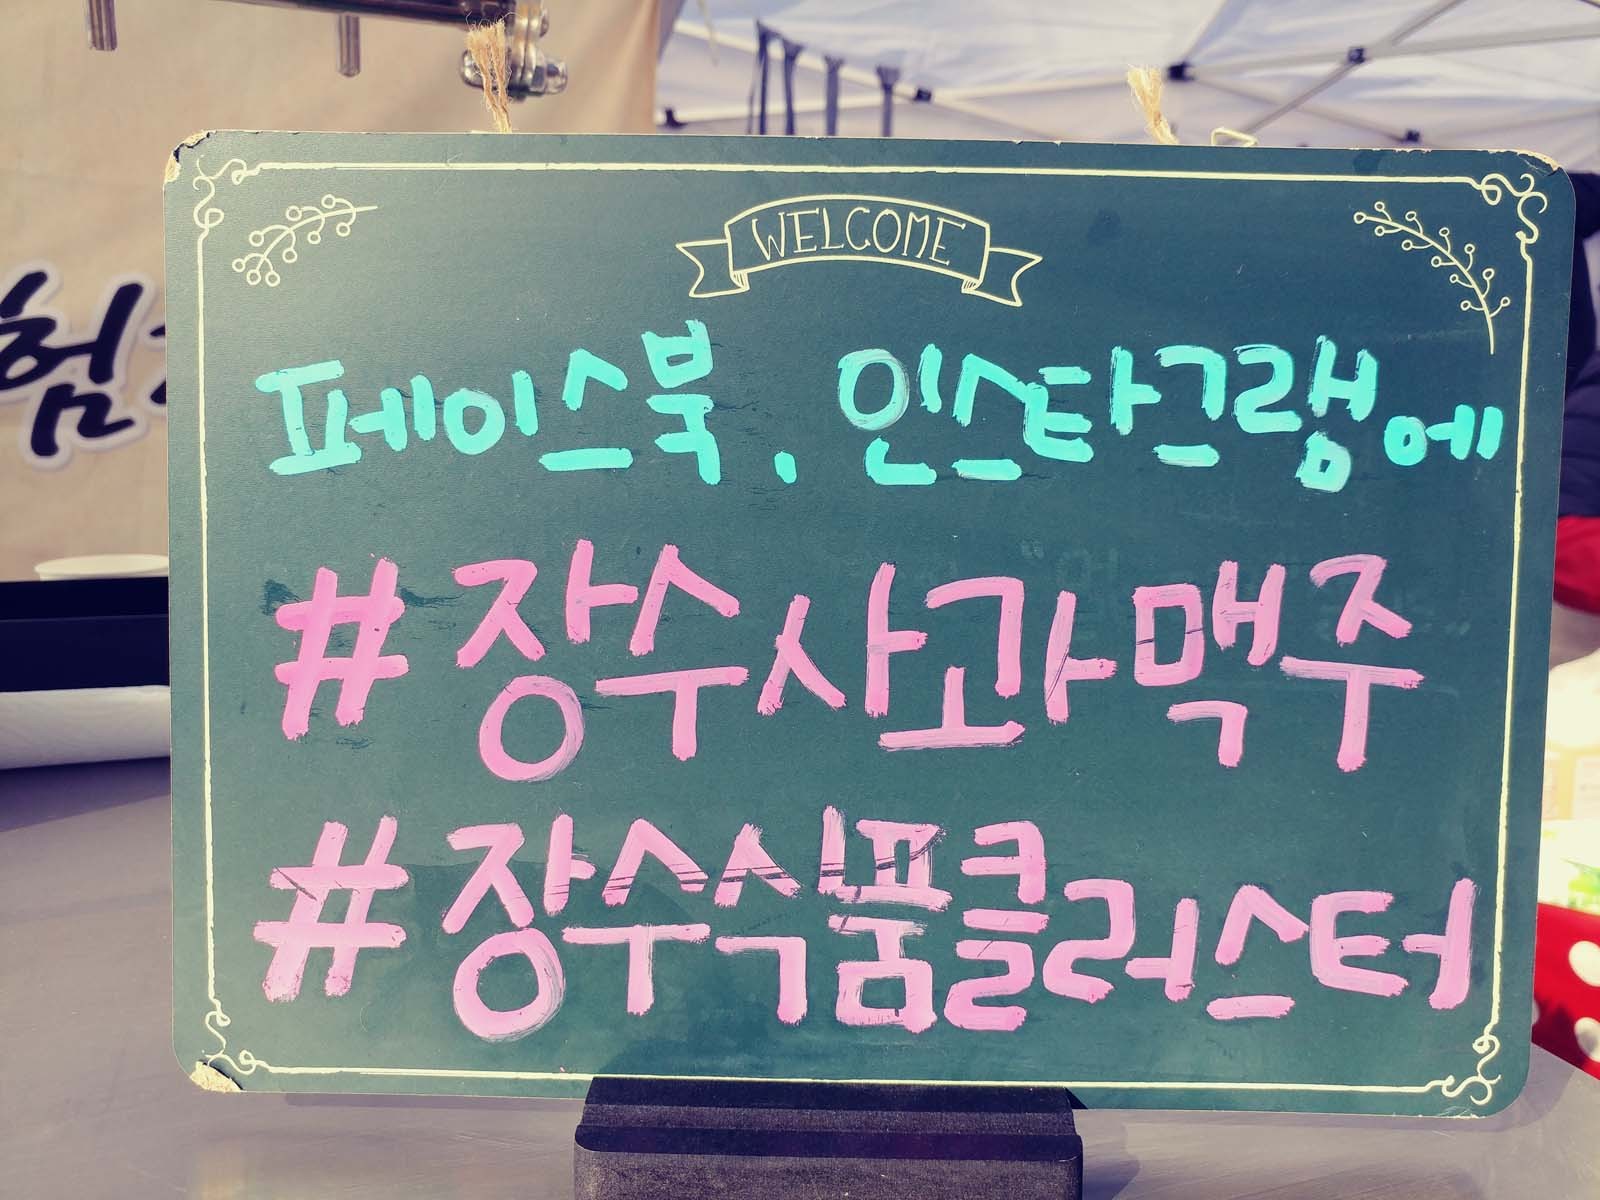 WELCOME
페이스북. 인스타그램에
#장수사과맥주
#장수식품클러스터
험